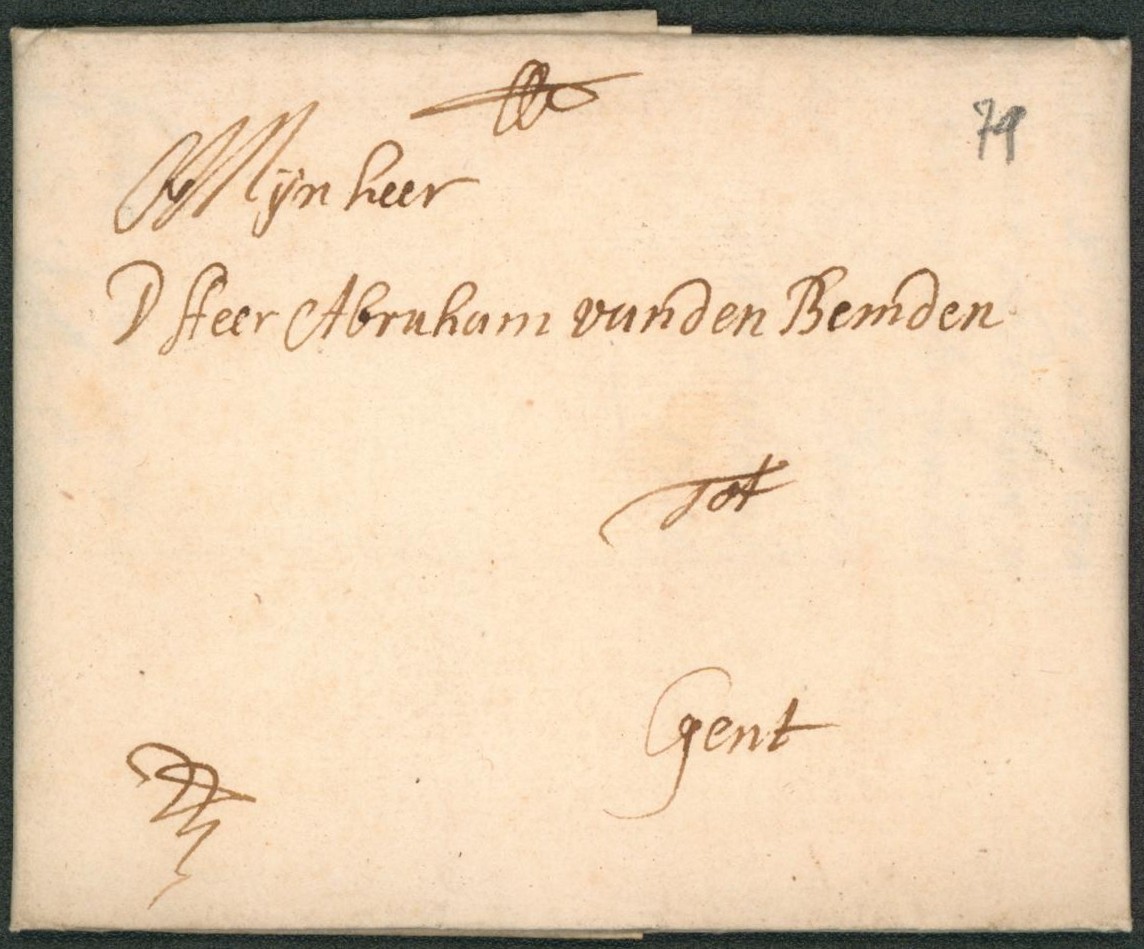 79
Mijn heer
D heer Abraham vanden Bemden
Tot
Gent